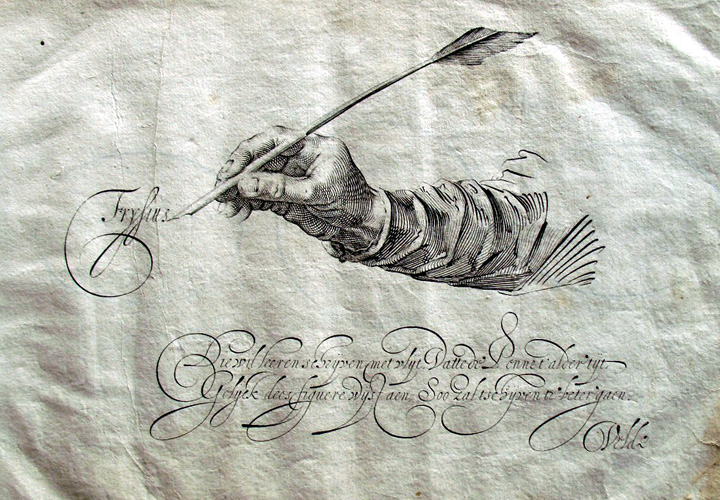 Frysius
Die wil leeren schryven met vlyt, Vatte de Penne t'alder tyt
Gelyck dees figuere wyst aen, Soo zal tschryven te beter gaen.
Velde